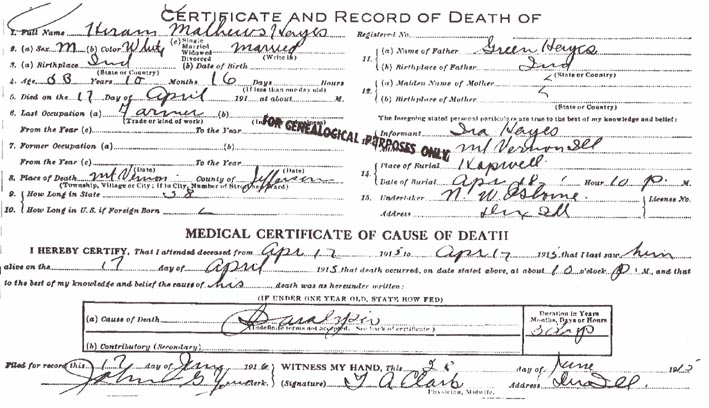 CERTIFICATE AND RECORD OF DEATH OF
1. Full Name Hiram Mathews Hayes Registered No.
2. (a) Sex M (b) Color White (c) Single Married Widowed Divorced married (Write in)
3. (a) Birthplace Ind (b) Date of Birth
(State or Country)
4. Age 58 Years 10 Months 16 Days Hours
(If less than one day old)
5. Died on the 17 Day of April 191 at about M.
6. Last Occupation (a) Farmer (b)
(Trade or kind of work)
From the Year (c) To the Year
7. Former Occupation (a) (b)
From the Year (c) To the Year
(Date) (Date)
8. Place of Death Mt Vernon County of Jefferson
(Township, Village or City; If in City, Number of Street and Ward)
9. How Long in State 38
10. How Long in U.S. if Foreign Born
11. (a) Name of Father Green Hayes
(b) Birthplace of Father Ind
(State or Country)
12. (a) Maiden Name of Mother
(b) Birthplace of Mother
(State or Country)
The foregoing stated personal particulars are true to the best of my knowledge and belief:
Informant Ira Hayes
Mt Vernon Ill
FOR GENEALOGICAL PURPOSES ONLY
14. Place of Burial
Date of Burial Apr 18 Hour 10 P M.
15. Undertaker N. W. License No.
Address Dix Ill
MEDICAL CERTIFICATE OF CAUSE OF DEATH
I HEREBY CERTIFY, That I attended deceased from Apr 17 1915 to Apr 17 1915 that I last saw him
alive on the 17 day of April 1915 that death occurred, on date stated above, at about 10 o'clock P M., and that
to the best of my knowledge and belief the cause of his death was as hereunder written:
(IF UNDER ONE YEAR OLD, STATE HOW FED)
(a) Cause of Death
(Indefinite terms not accepted. See back of certificate.)
Duration in Years Months, Days or Hours
3
(b) Contributory (Secondary)
Filed for record this 17 day of 191 WITNESS MY HAND, This 28 day of June 1915
John G Clerk. (Signature) T A Clark Address Ill
Physician, Midwife.